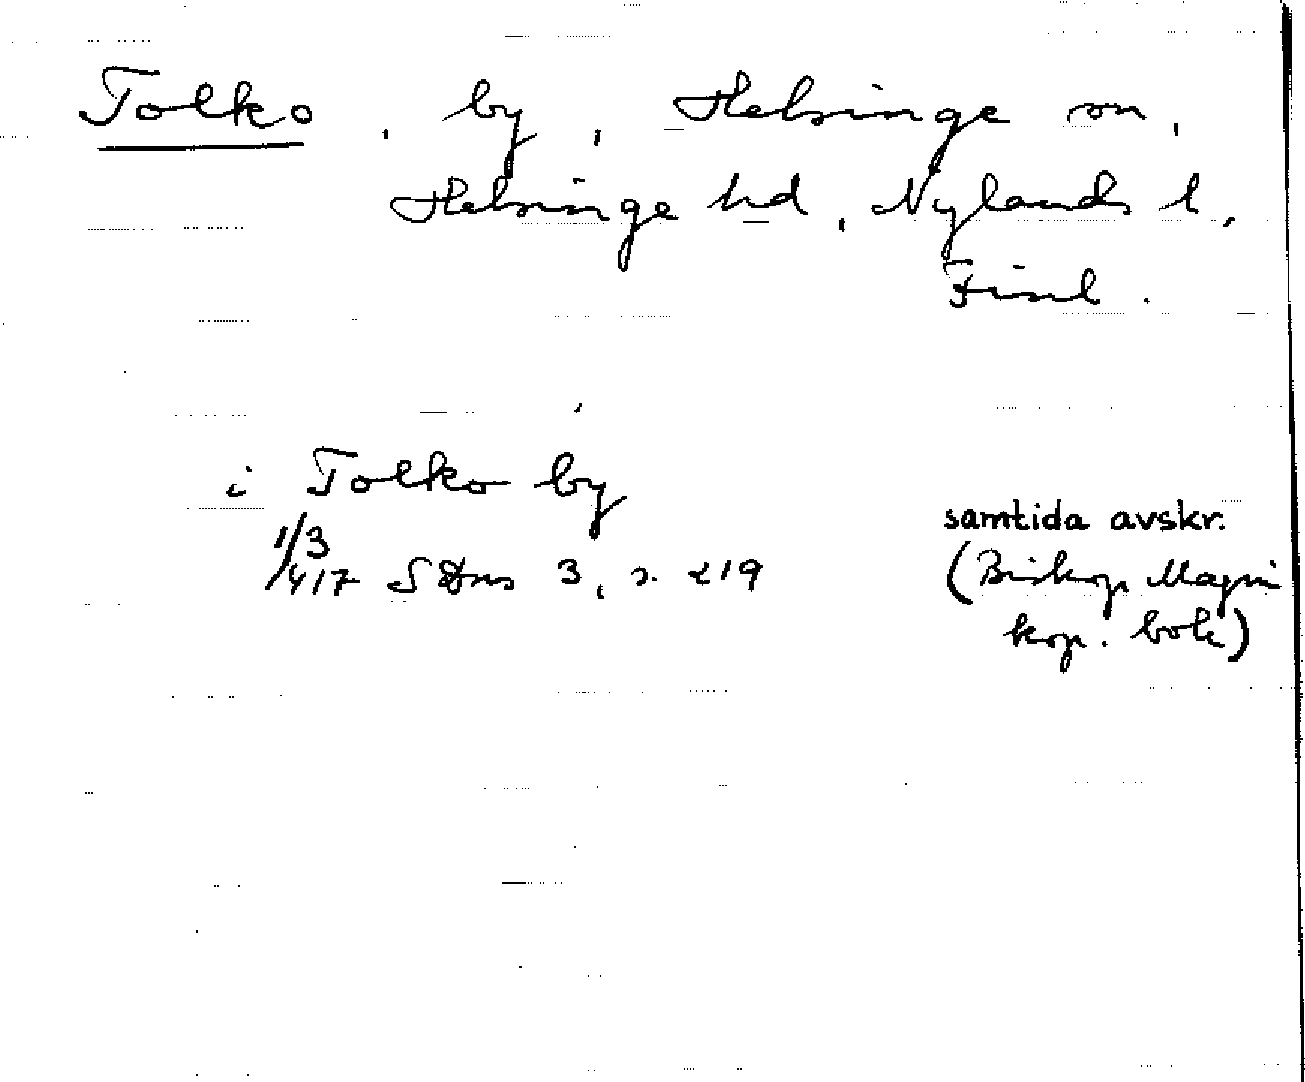 Tolko, by, Helsinge sn,
Helsinge hd, Nylands l.
Finl.
i Tolko by
1/3
1417 SDns 3, s. 219
samtida avskr.
(Biskop Magni
kop. bok)